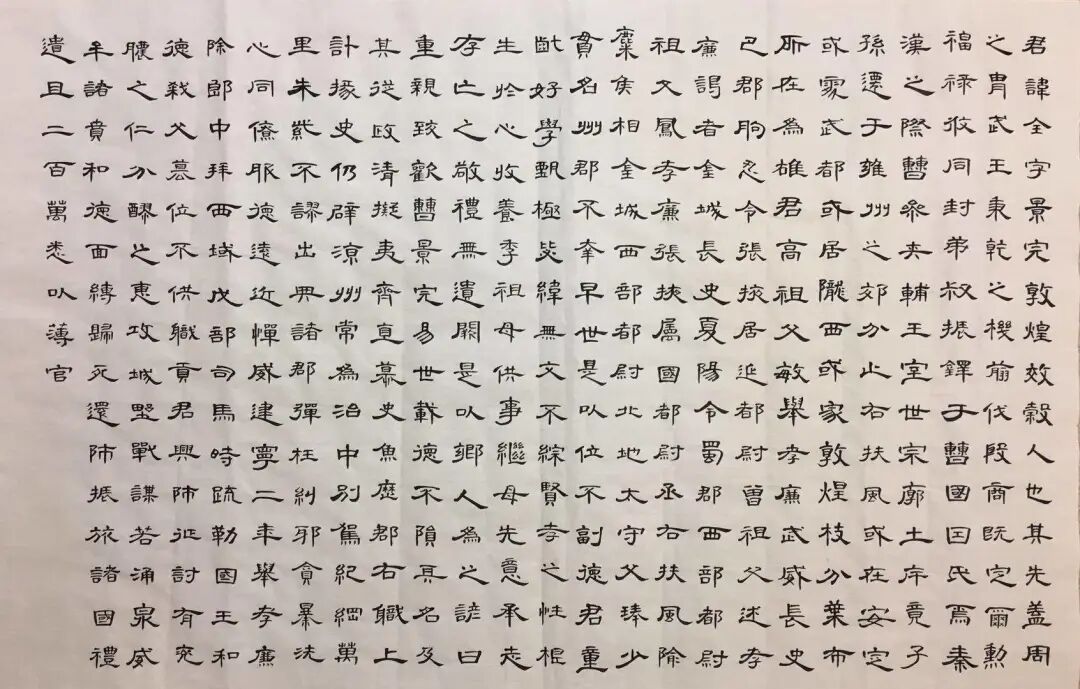 君諱全字景完敦煌效穀人也其先盖周
之胄武王秉乾之機翦伐殷商既定爾勲
福禄攸同封弟叔振鐸于曹國因氏焉秦
漢之際曹參夾輔王室世宗廓土斥竟子
孫遷于雍州之郊分止右扶風或在安定
或處武都或居隴西或家敦煌枝分葉布
所在為雄君高祖父敏舉孝廉武威長史
巴郡朐忍令張掖居延都尉曾祖父述孝
廉謁者金城長史夏陽令蜀郡西部都尉
祖父鳳孝廉張掖屬國都尉丞右扶風隃
麋侯相金城西部都尉北地太守父琫少
貫名州郡不幸早世是以位不副德君童
齔好學甄極毖緯無文不綜賢孝之性根
生於心收養季祖母供事繼母先意承志
存亡之敬禮無遺闕是以鄉人為之諺曰
重親致歡曹景完易世載德不隕其名及
其從政清擬夷齊直慕史魚歷郡右職上
計掾史仍辟涼州常為治中別駕紀綱萬
里朱紫不謬出典諸郡彈枉糾邪貪暴洗
心同僚服德遠近憚威建寧二年舉孝廉
除郎中拜西域戊部司馬時疏勒國王和
德弒父篡位不供職貢君興師征討有兗
膿之仁分醪之惠攻城野戰謀若涌泉威
牟諸賁和德面縛歸死還師振旅諸國禮
遺且二百萬悉以薄官